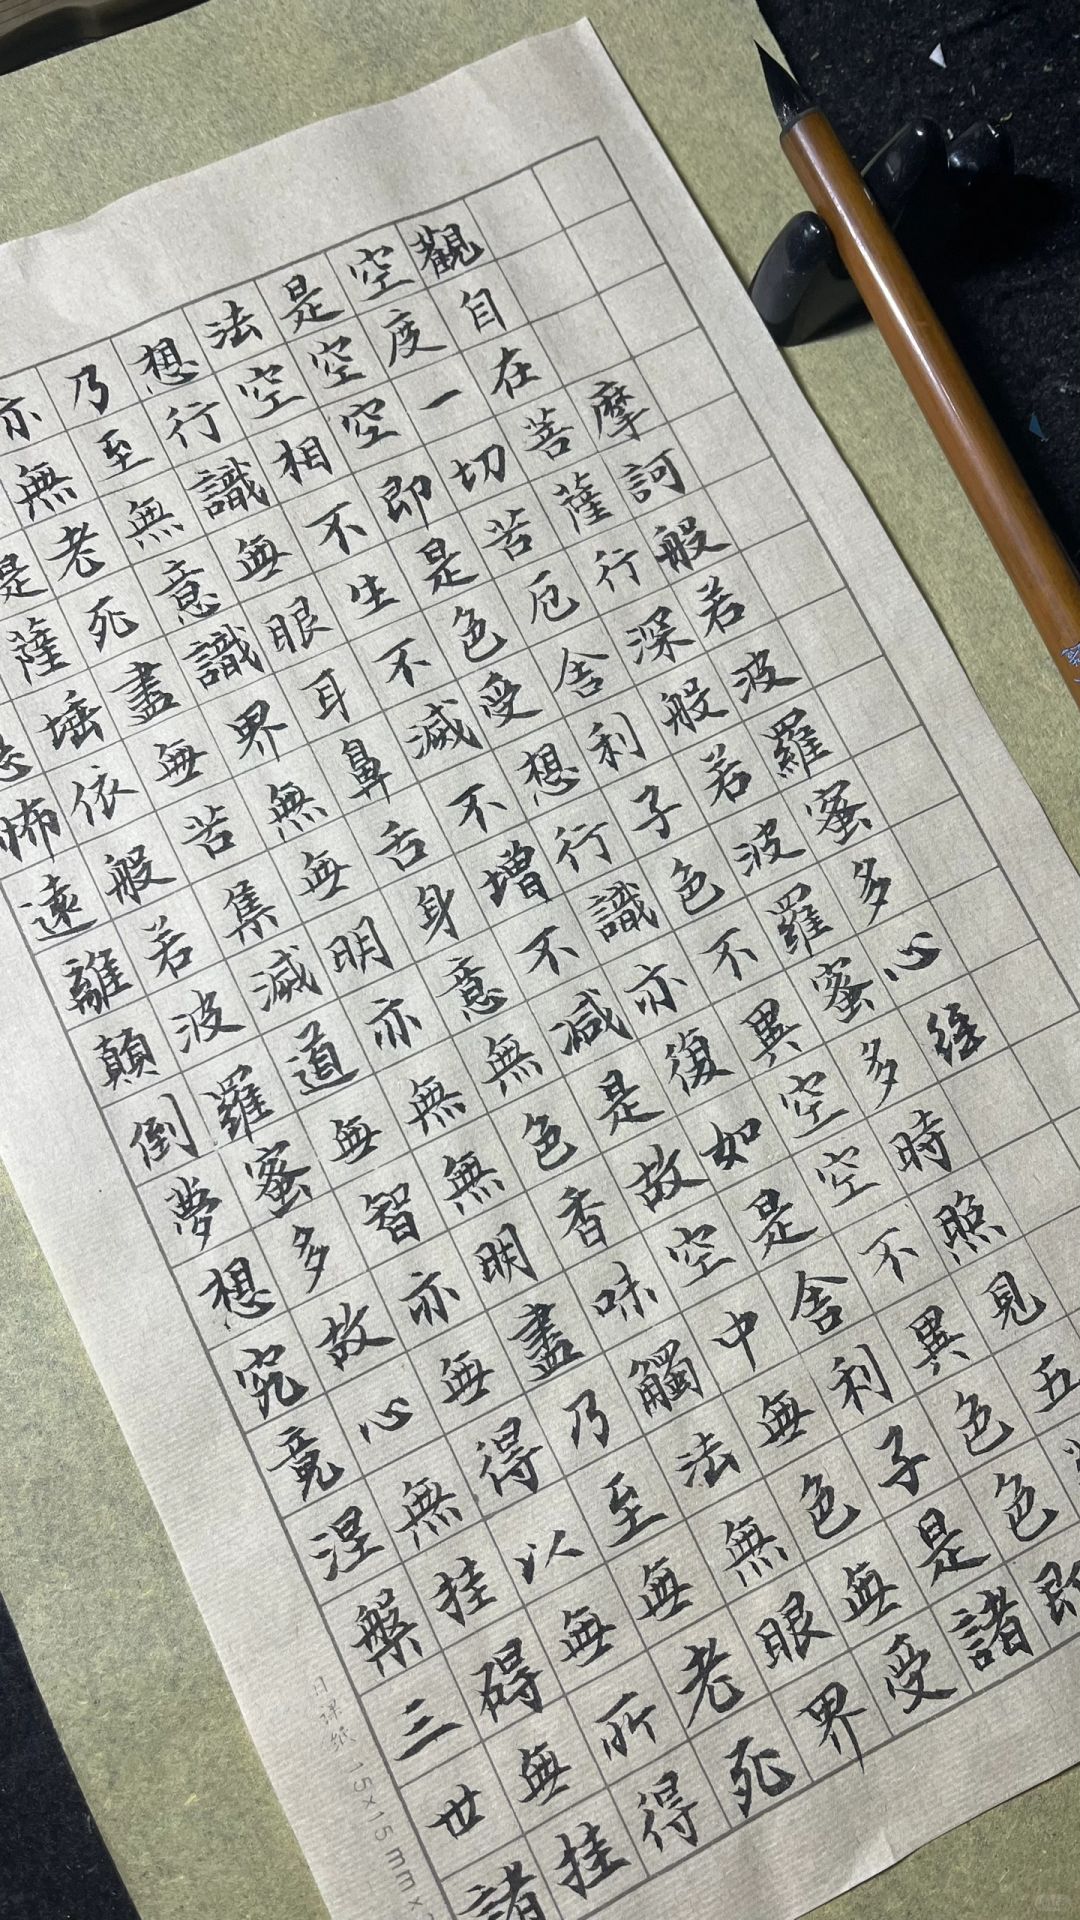 摩訶般若波羅蜜多心経
觀自在菩薩行深般若波羅蜜多時照見五
空度一切苦厄舍利子色不異空空不異色色即
是空空即是色受想行識亦復如是舍利子是諸
法空相不生不滅不增不減是故空中無色無受
想行識無眼耳鼻舌身意無色香味觸法無眼界
乃至無意識界無無明亦無無明盡乃至無老死
亦無老死盡無苦集滅道無智亦無得以無所得
薩埵依般若波羅蜜多故心無挂碍無挂
怖遠離顛倒夢想究竟涅槃三世諸
日課紙 15×15mm×